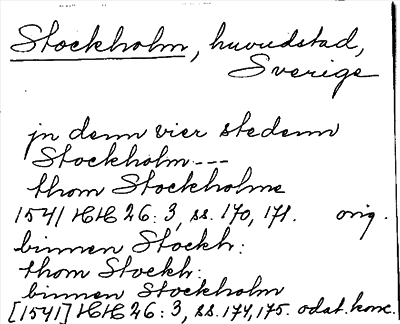 Stockholm, huvudstad,
Sverige
jn denn vier stedenn
Stockholm ---
thom Stockholme
1541 HH 26:3, ss. 170, 171. orig.
binnen Stockh:
thom Stockh:
binnen Stockholm
[1541] HH 26:3, ss. 174, 175. odat. konc.